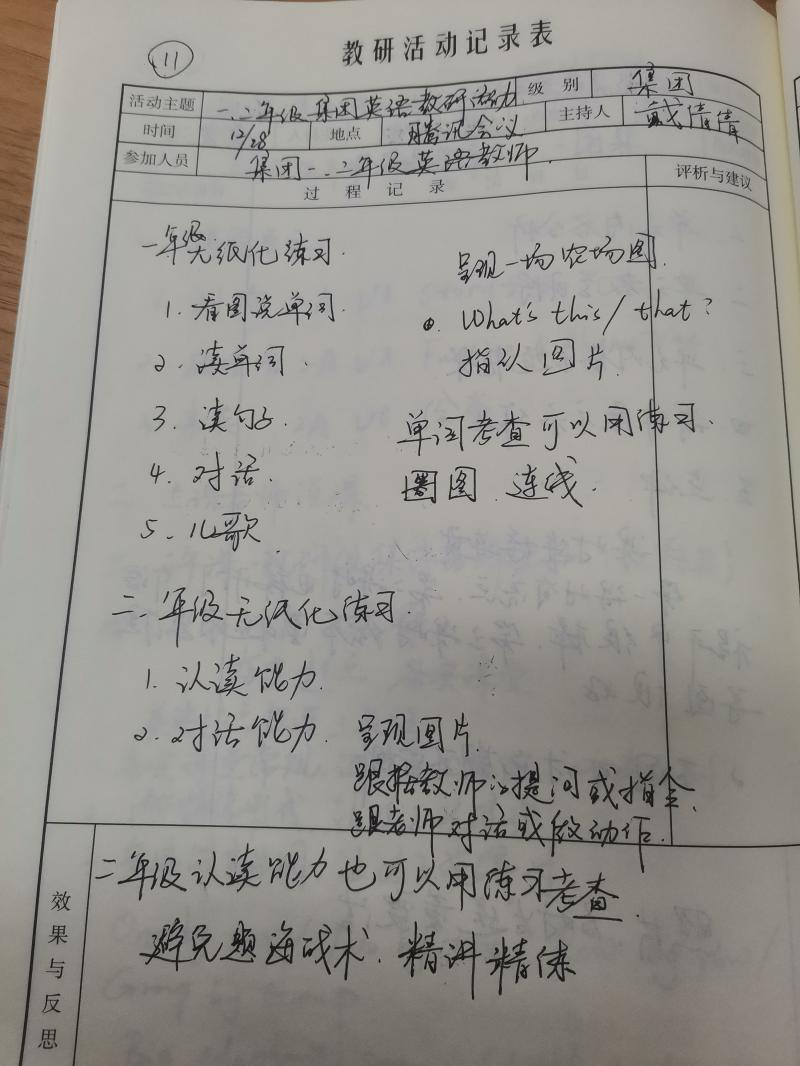 11
教研活动记录表
活动主题 一、二年级集团英语教研活动 级别 集团
时间 12/28 地点 腾讯会议 主持人 戴倩倩
参加人员 集团一、二年级英语教师.
过程记录 评析与建议
一年级无纸化练习.
呈现一场农场图.
1. 看图说单词.
What's this / that?
2. 读单词.
指认图片.
3. 读句子.
单词考查可以用练习.
4. 对话.
圈图、连线.
5. 儿歌
二、年级无纸化练习.
1. 认读能力.
2. 对话能力. 呈现图片.
跟据教师的提问或指令,
跟老师对话或做动作.
效果与反思
二年级认读能力也可以用练习考查.
避免题海战术. 精讲精练